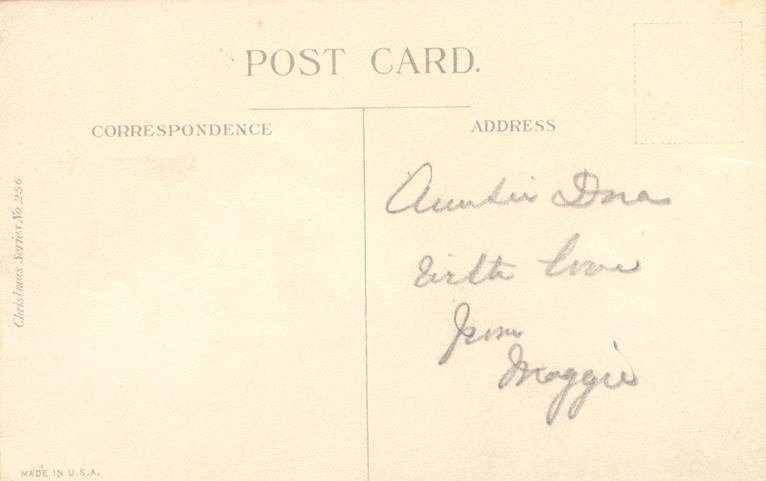 POST CARD.
CORRESPONDENCE
ADDRESS
Christmas Series No 256
Auntie Dora
With love
from
Maggie
MADE IN U.S.A.